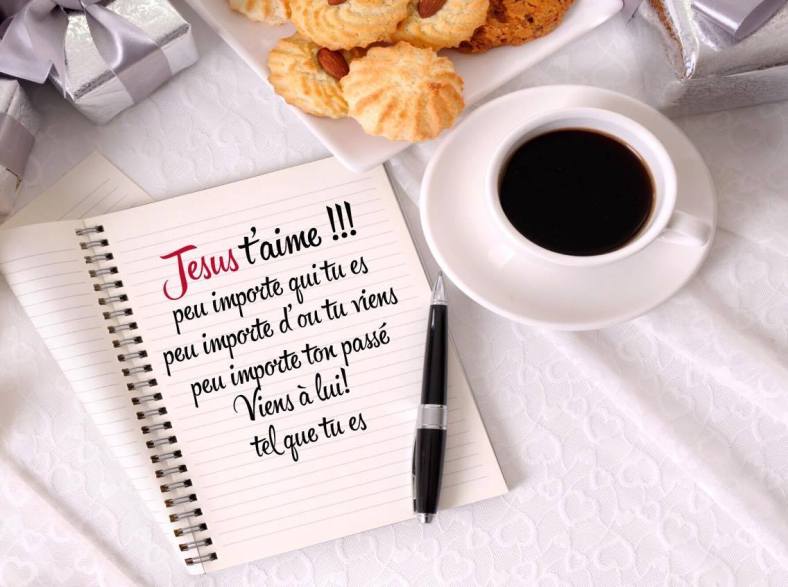 Jesus t'aime !!!
peu importe qui tu es
peu importe d'ou tu viens
peu importe ton passé
Viens à lui!
tel que tu es